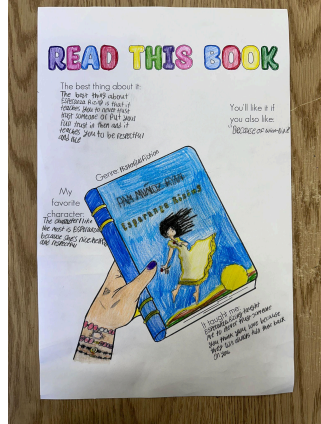 READ THIS BOOK
The best thing about it:
The best thing about
Esperanza Rising is that it
teaches you to never trust
trust someone or put your
full trust in them and it
teaches you to be respectful
and nice
You'll like it if
you also like:
Because of
Genre: Historical Fiction
My
favorite
character:
The character I like
the most is Esperanza
because she's nice
and respectful
Esperanza Rising
It taught me:
Esperanza Rising taught
me to never trust someone
you think you love because
they will always turn their back
on you